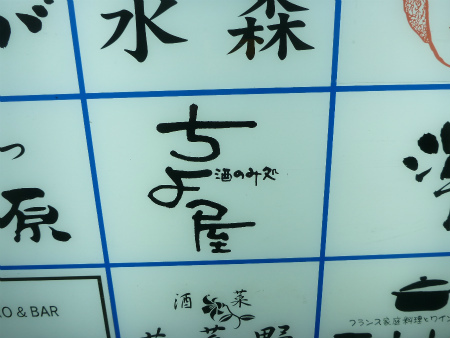 が
水 森
っ
原
ちよ屋
酒のみ処
O & BAR
酒 菜
フランス家庭料理とワイン